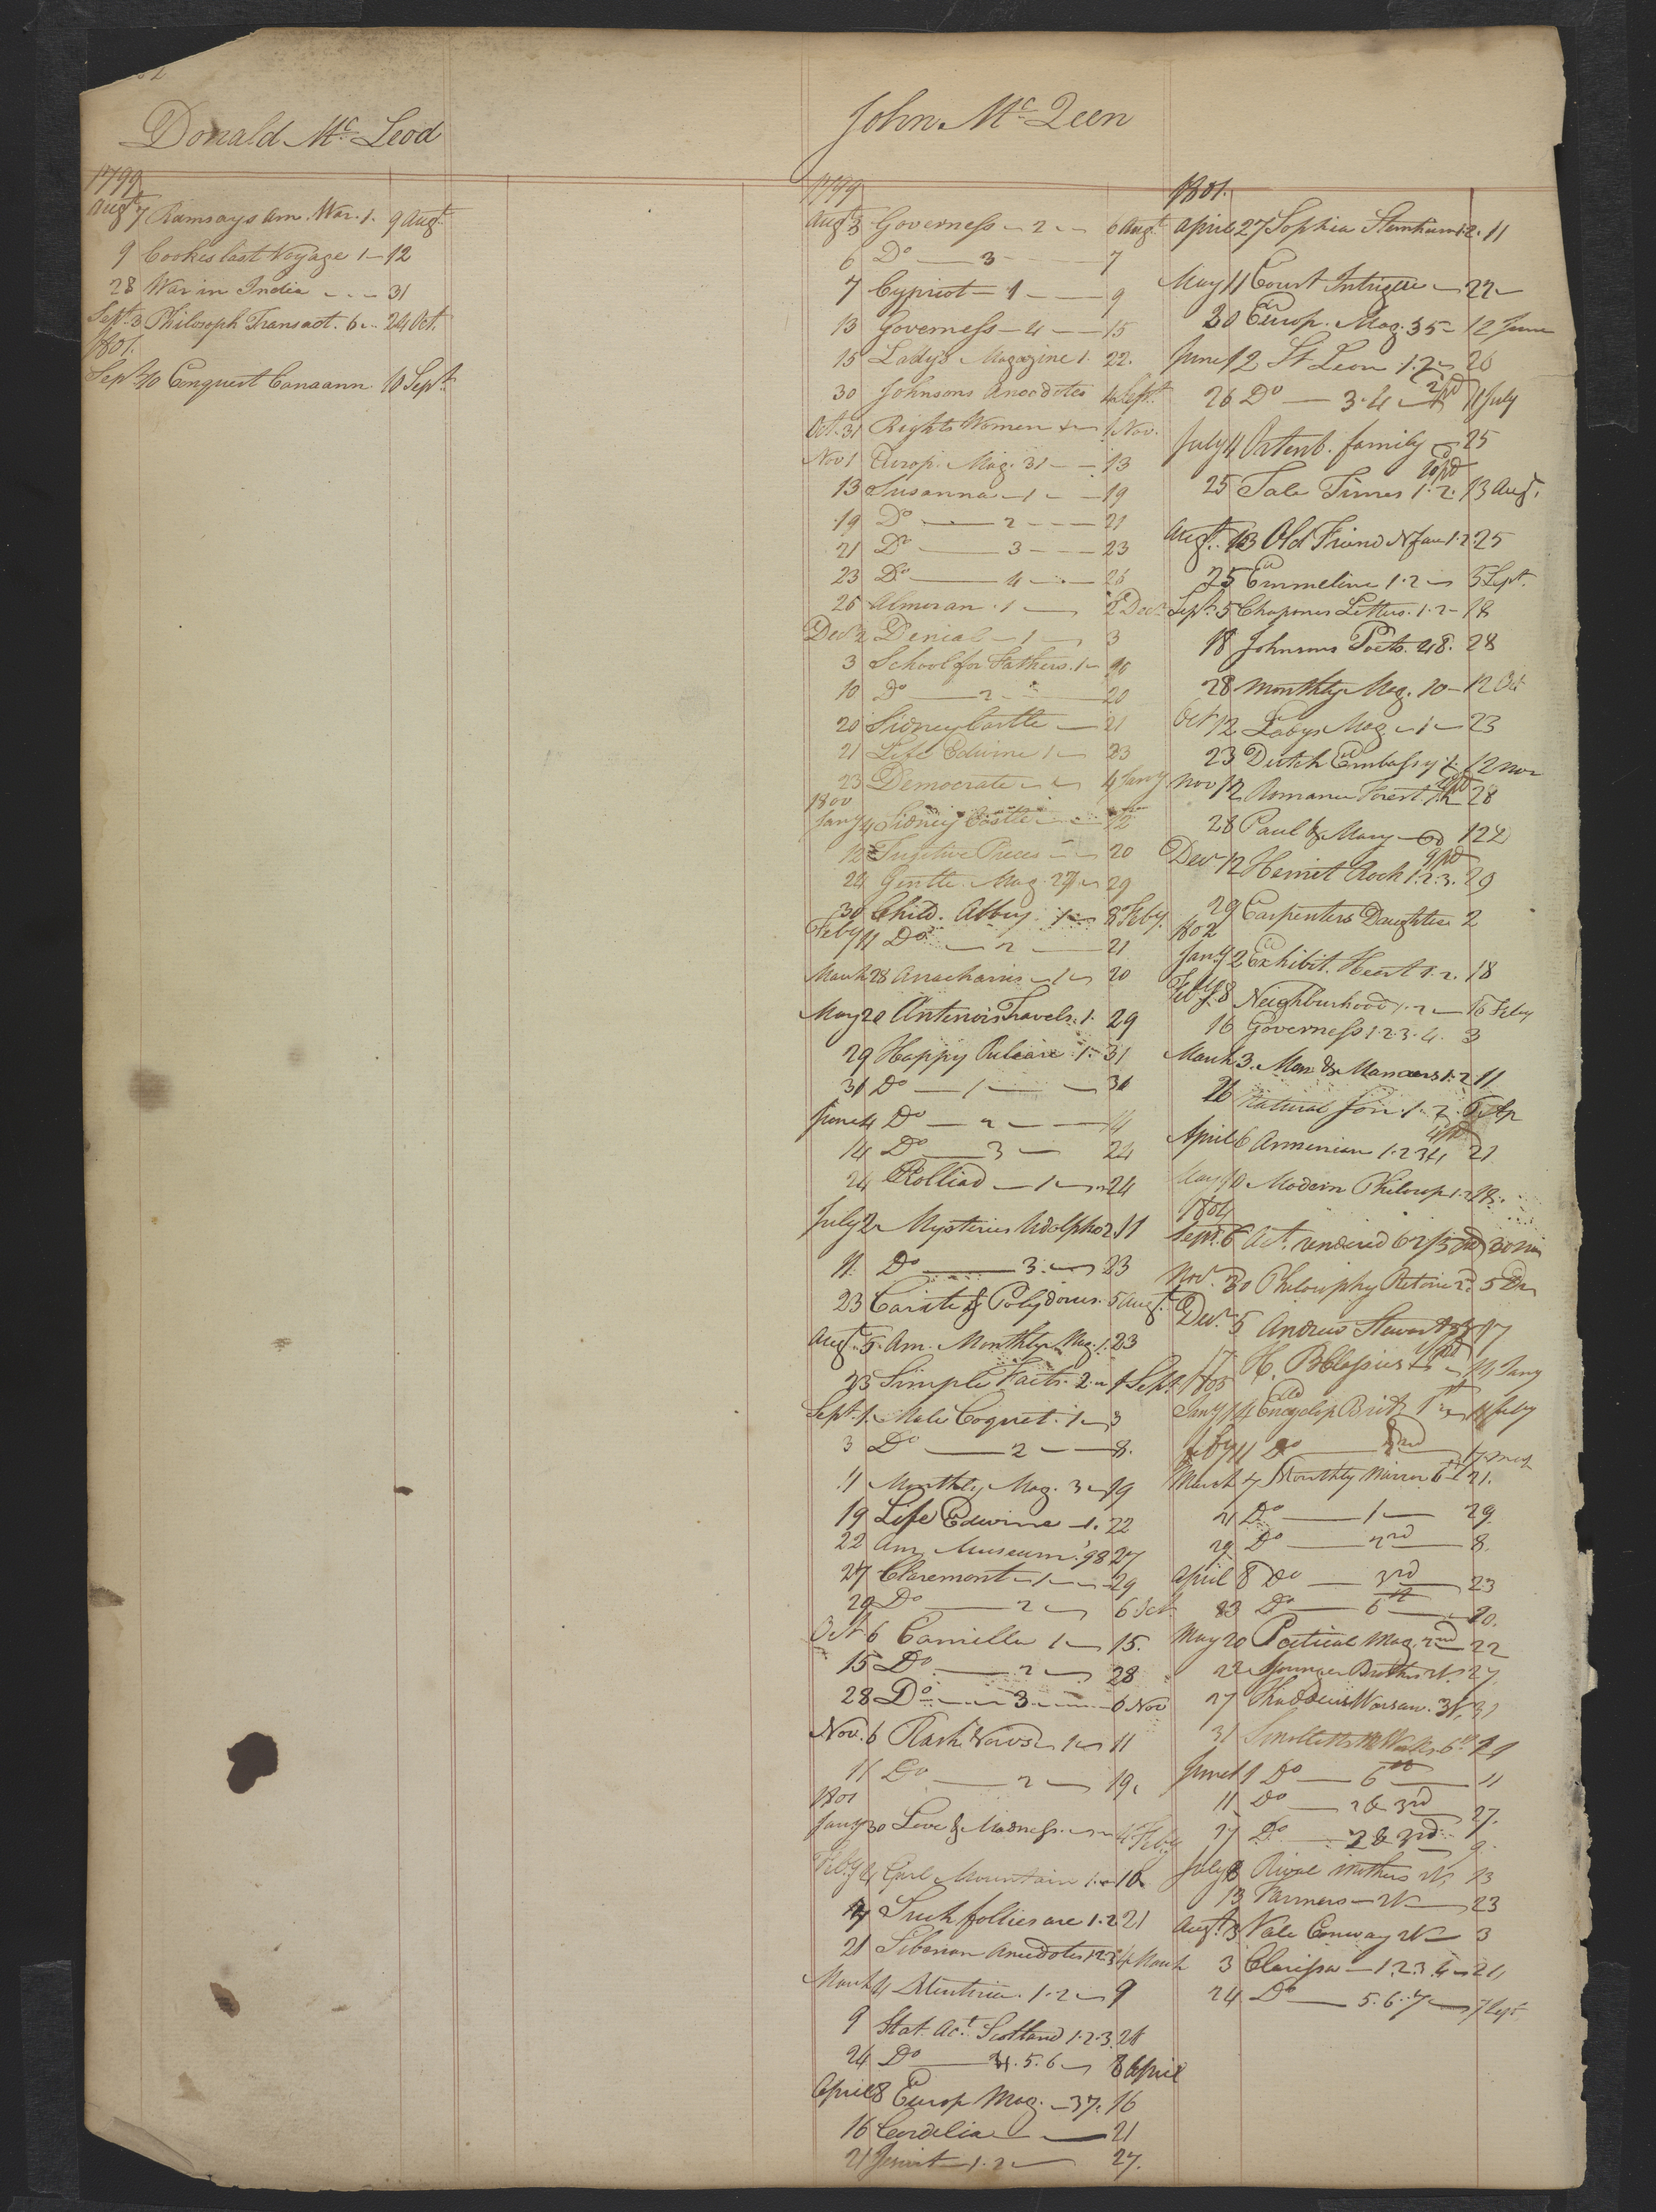 Donald Mc Leod
1799
Augt 7 Ramsays Am. War. 1. 9 Augt
9 Cookes last Voyage 1 — 12
28 War in India - - - 31
Sept. 3 Philosoph Transact. 6 .. 24 Oct.
1801.
Sept. 10 Conquest Canaann. 10 Sept.
John Mc Qeen
1799
Augt 3 Governess — 2 — 6 Augt
6 Do — 3 — 7
7 Cypriot — 1 — 9
13 Governess — 4 — 15
15 Ladys Magazine 1. 22.
30 Johnsons Anecdotes 4 Sept.
Oct. 31 Rights Women — 1 Nov.
Nov 1 Europ. Mag. 31 — 13
13 Susanna — 1 — 19
19 Do — 2 — 21
21 Do — 3 — 23
23 Do — 4 — 26
26 Almoran . 1 — 2 Decr
Decr 2 Denial — 1 — 3
3 School for Fathers. 1 — 10
10 Do — 2 — 20
20 Sidney Castle — 21
21 Life Edwine 1 — 23
23 Democrate — 4 Jany
1800
Jany 4 Sidney Castle — 12
12 Fugitive Pieces — 20
24 Gentle. Mag. 27 — 29
30 Child. Abbey 1 — 8 Feby.
Feby 11 Do — 2 — 21
March 28 Anacharsis — 1 — 20
May 20 Antenors Travels. 1. 29
29 Happy 1. 31
31 Do — 1 — 31
June 4 Do — 2 — 14
14 Do — 3 — 24
24 Rolliad — 1 — 24
July 2 Mysteries Udolpho 2. 11
11. Do — 3. — 23
23 Carite & Polydorus. 5 Augt
Augt 5. Am. Monthly Mag. 1. 23
23 Simple Facts. 2. — 1 Sept.
Sept. 1. Male Coquet. 1 — 3
3 Do — 2 — 8.
11 Monthly Mag. 3 — 19
19 Life Edwine — 1. 22
22 Am. Museum. '98 27
27 Claremont — 1 — 29
29 Do — 2 — 6 Oct.
Oct 6 Camilla 1 — 15.
15 Do — 2 — 28
28 Do — 3. — 6 Nov
Nov. 6 Rash Vows — 1 — 11
11 Do — 2 — 19.
1801
Jany 30 Love & Madness. — 4 Feby
Feby 4 Girl Mountain 1. — 10
17 Such follies are 1. 2 21
21 Siberian Anecdotes 1 2 3 4 March
March 4 1. 2 — 9
9 Stat. Act. Scotland 1. 2. 3. 24
24 Do — 4. 5. 6 — 8 April
April 8 Europ Mag. — 37. 16
16 Cordelia — 21
21 Jesuit — 1. 2 — 27.
1801.
April 27 Sophia Sternheim 1. 2. 11
May 11 Court Intrigue — 22 —
20 Europ. Mag. 35 — 12 June
June 12 St Leon 1. 2 — 26
26 Do — 3. 4 — 11 July
July 11 family — 25
25 Tale Times 1. 2. 13 Augt.
Augt. 13 Old Friend N face 1. 2 25
25 Emmeline 1. 2 — 5 Sept.
Sept. 5 Chapones Letters. 1. 2 — 18
18 Johnsons Poets. 48. 28
28 Monthly Mag. 10 — 12 Oct
Oct 12 Ladys Mag — 1 — 23
23 Dutch Embassy 1. 12 Nov
Nov 12 Romance Forest 1. 2 28
28 Paul & Mary — 12
Decr 12 Hermit Rock 1. 2. 3. 29
29 Carpenters Daughter 2
1802
Jany 2 Exhibit. Heart 1. 2. 18
Feby 8 Neighburhood 1. 2 — 16 Feby
16 Governess 1. 2. 3. 4. 3
March 3. Man & Manners 1. 2 11
26 Natural Son. 1. 2. 6 Ap
April 6 Armenian 1. 2 3 4 21
May 10 Modern Philosop 1. 2 18.
1804
Sept. 6 Act. rendered
Nov. 30 Philosophy 5 Dr
Decr 5 Andrew Stewart 17
17. H. Blossius 14 Jany
1805
Jany 14 Encyclop Brit. 1st 11 feby
feby 11 Do — 2nd 7 March
March 7 Monthly Mirror 6th 21.
21 Do — 1 — 29
29 Do — 2nd — 8.
April 8 Do — 3rd — 23
23 Do — 6th — 20.
May 20 Poetical Mag. 2nd — 22
22 Younger Brother 27.
27 Thaddeus Warsaw. 31
31 Smolletts Works 6th
June 1 Do — 6th — 11
11 Do — 2 & 3rd 27.
27 Do — 2 & 3rd 9.
July 9 Rival Mothers 13
13 Farmers — 23
Augt. 3 Vale Conway 3
3 Clarissa — 1. 2. 3. 4 — 24
24 Do — 5. 6. 7 — 7 Sept